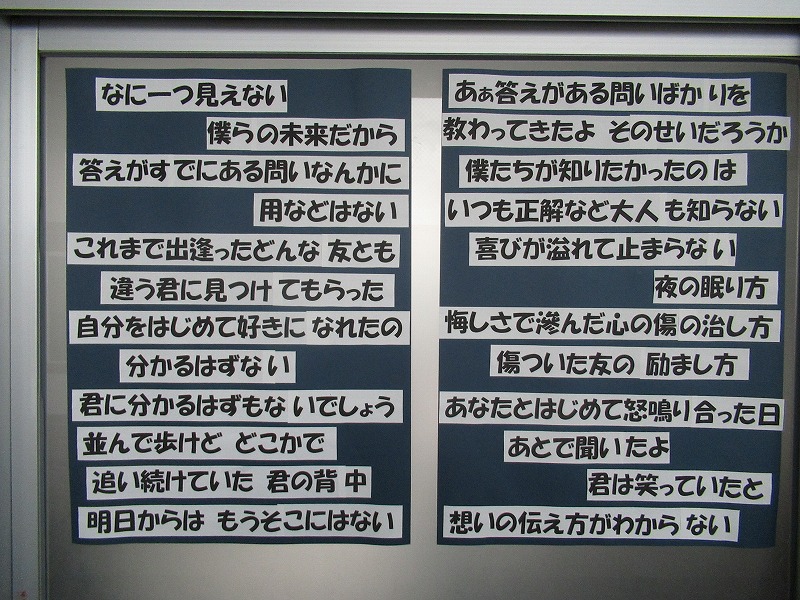 なに一つ見えない
僕らの未来だから
答えがすでにある問いなんかに
用などはない
これまで出逢ったどんな 友とも
違う君に見つけ てもらった
自分をはじめて好きに なれたの
分かるはずない
君に分かるはずもな いでしょう
並んで歩けど どこかで
追い続けていた 君の背 中
明日からは もうそこにはない
あぁ答えがある問いばか りを
教わってきたよ そのせいだろうか
僕たちが知りたかったの は
いつも正解など大人 も知らない
喜びが溢れて止まらな い
夜の眠り方
悔しさで滲んだ心の傷の治し 方
傷ついた友の 励まし 方
あなたとはじめて怒鳴り 合った日
あとで聞いたよ
君は笑っていたと
想いの伝え方がわから ない